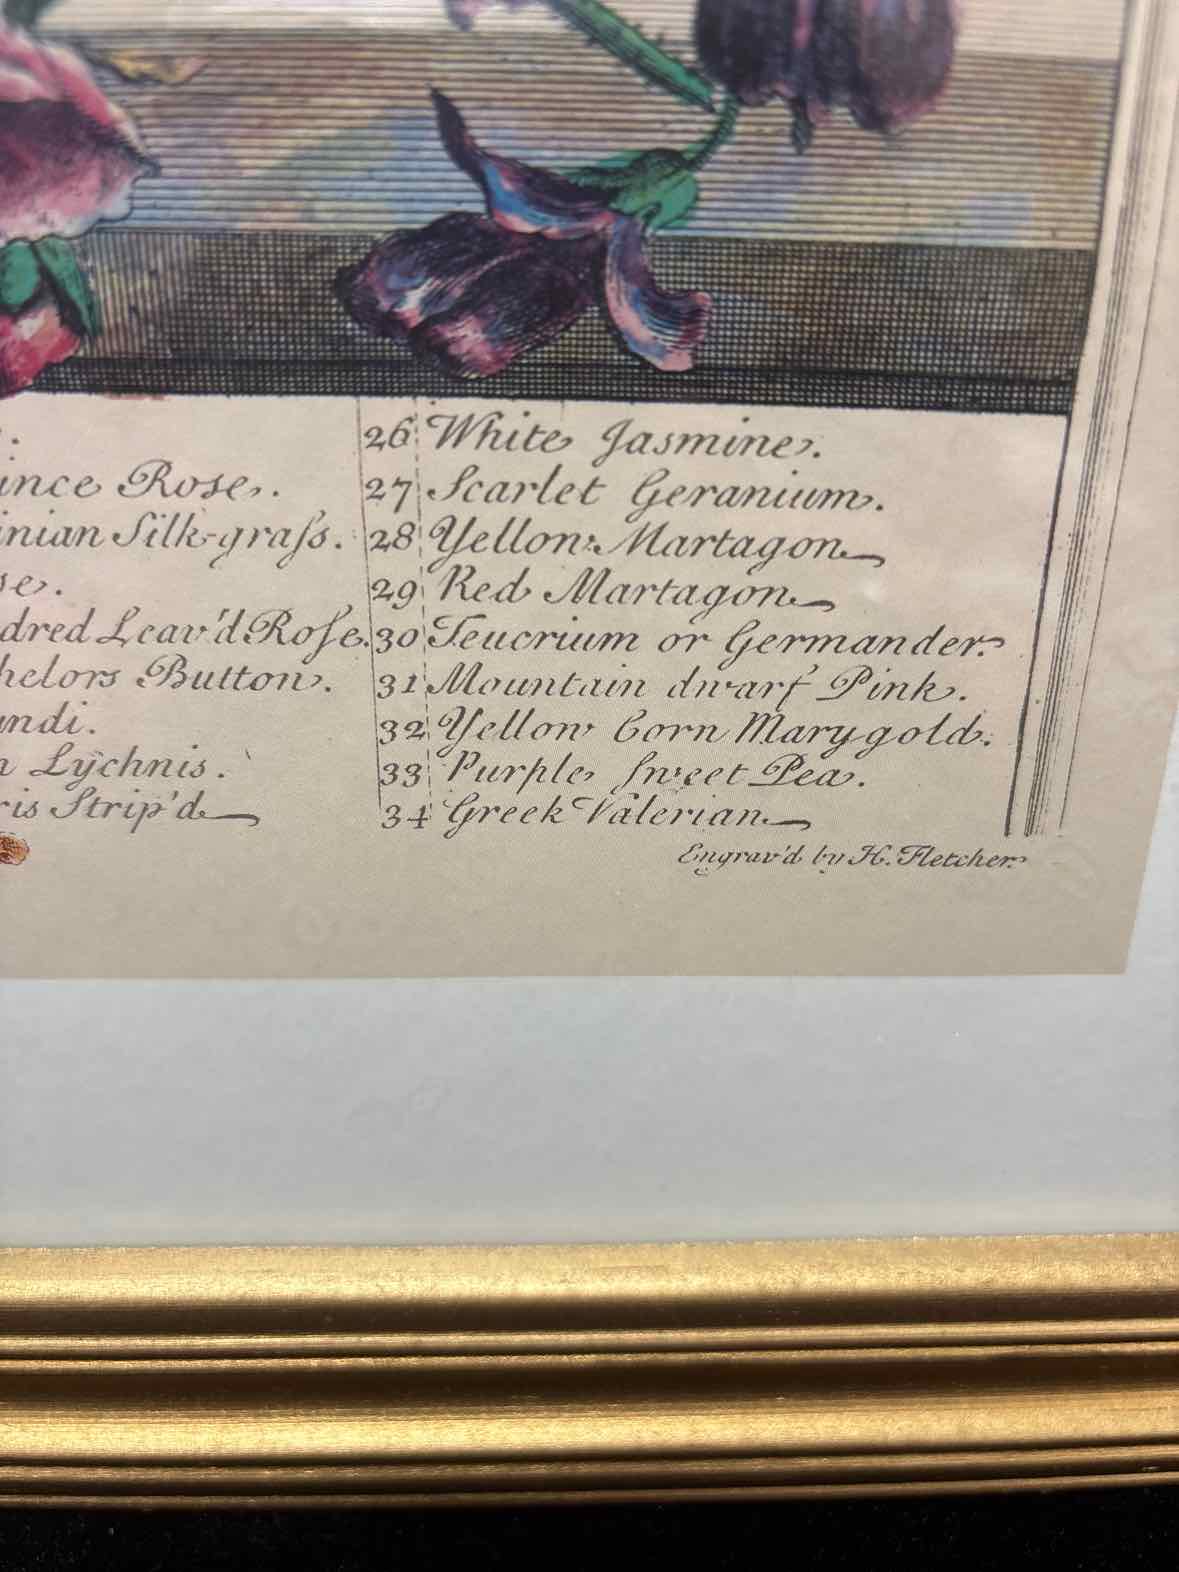 ince Rose.
inian Silk-graſs.
se.
dred Leav'd Roſe.
helors Button.
ndi.
n Lychnis.
ris Strip'd
26 White Jasmine.
27 Scarlet Geranium.
28 Yellow Martagon
29 Red Martagon
30 Teucrium or Germander.
31 Mountain dwarf Pink.
32 Yellow Corn Marygold.
33 Purple Sweet Pea.
34 Greek Valerian
Engrav'd by H. Fletcher.